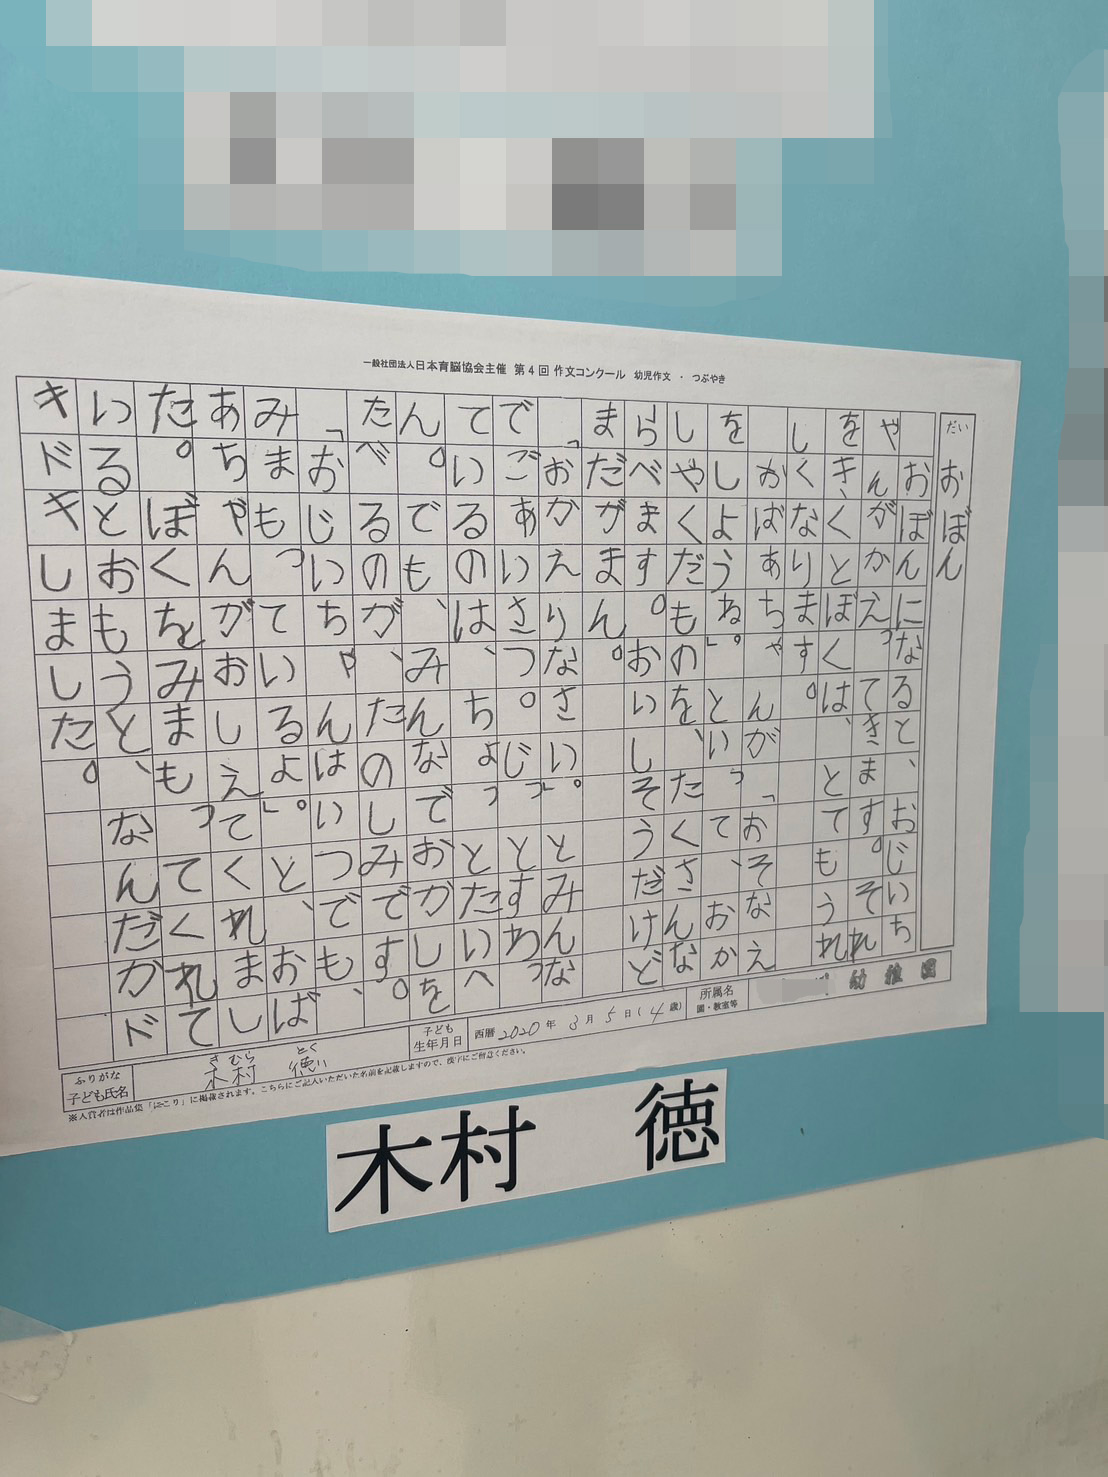 一般社団法人日本育脳協会主催 第4回 作文コンクール 幼児作文 ・ つぶやき
だい おぼん
おぼんになると、おじいち
やんがかえってきます。それ
をきくとぼくは、とてもうれ
しくなります。
おばあちゃんが「おそなえ
をしようね。」といって、おか
しやくだものを、たくさんな
らべます。おいしそうだけど
まだがまん。
「おかえりなさい。」とみんな
でごあいさつ。じっとすわっ
ているのは、ちょっとたいへ
ん。でも、みんなでおかしを
たべるのが、たのしみです。
「おじいちゃんはいつでも、
みまもっているよ。」と、おば
あちゃんがおしえてくれまし
た。ぼくをみまもってくれて
いるとおもうと、なんだかド
キドキしました。
所属名 園・教室等 幼稚園
子ども生年月日 西暦 2020年 3月 5日(4歳)
ふりがな きむら とく
子ども氏名 木村 徳
※入賞者は作品集「にこり」に掲載されます。こちらにご記入いただいた名前を記載しますので、漢字にご留意ください。
木村 徳